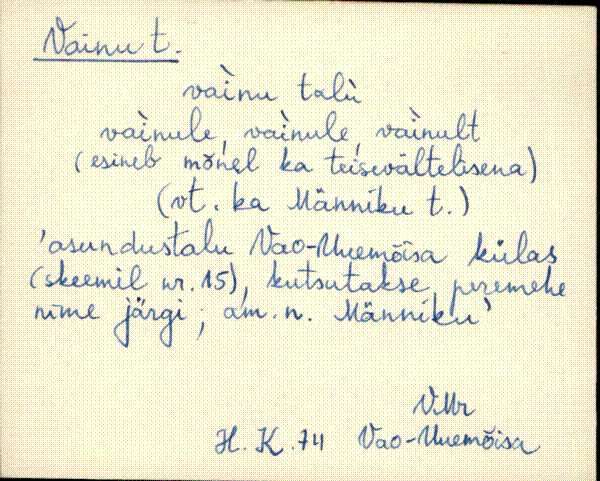 Vainu t.
vaìnu talù
vaìnule, vaìnule, vaìnult
(esineb mõnel ka teisevältelisena)
(vt. ka Männiku t.)
'asundustalu Vao-Uuemõisa külas
(skeemil nr. 15), kutsutakse peremehe
nime järgi; am. n. Männiku'
V.Mr
H. K. 74 Vao-Uuemõisa